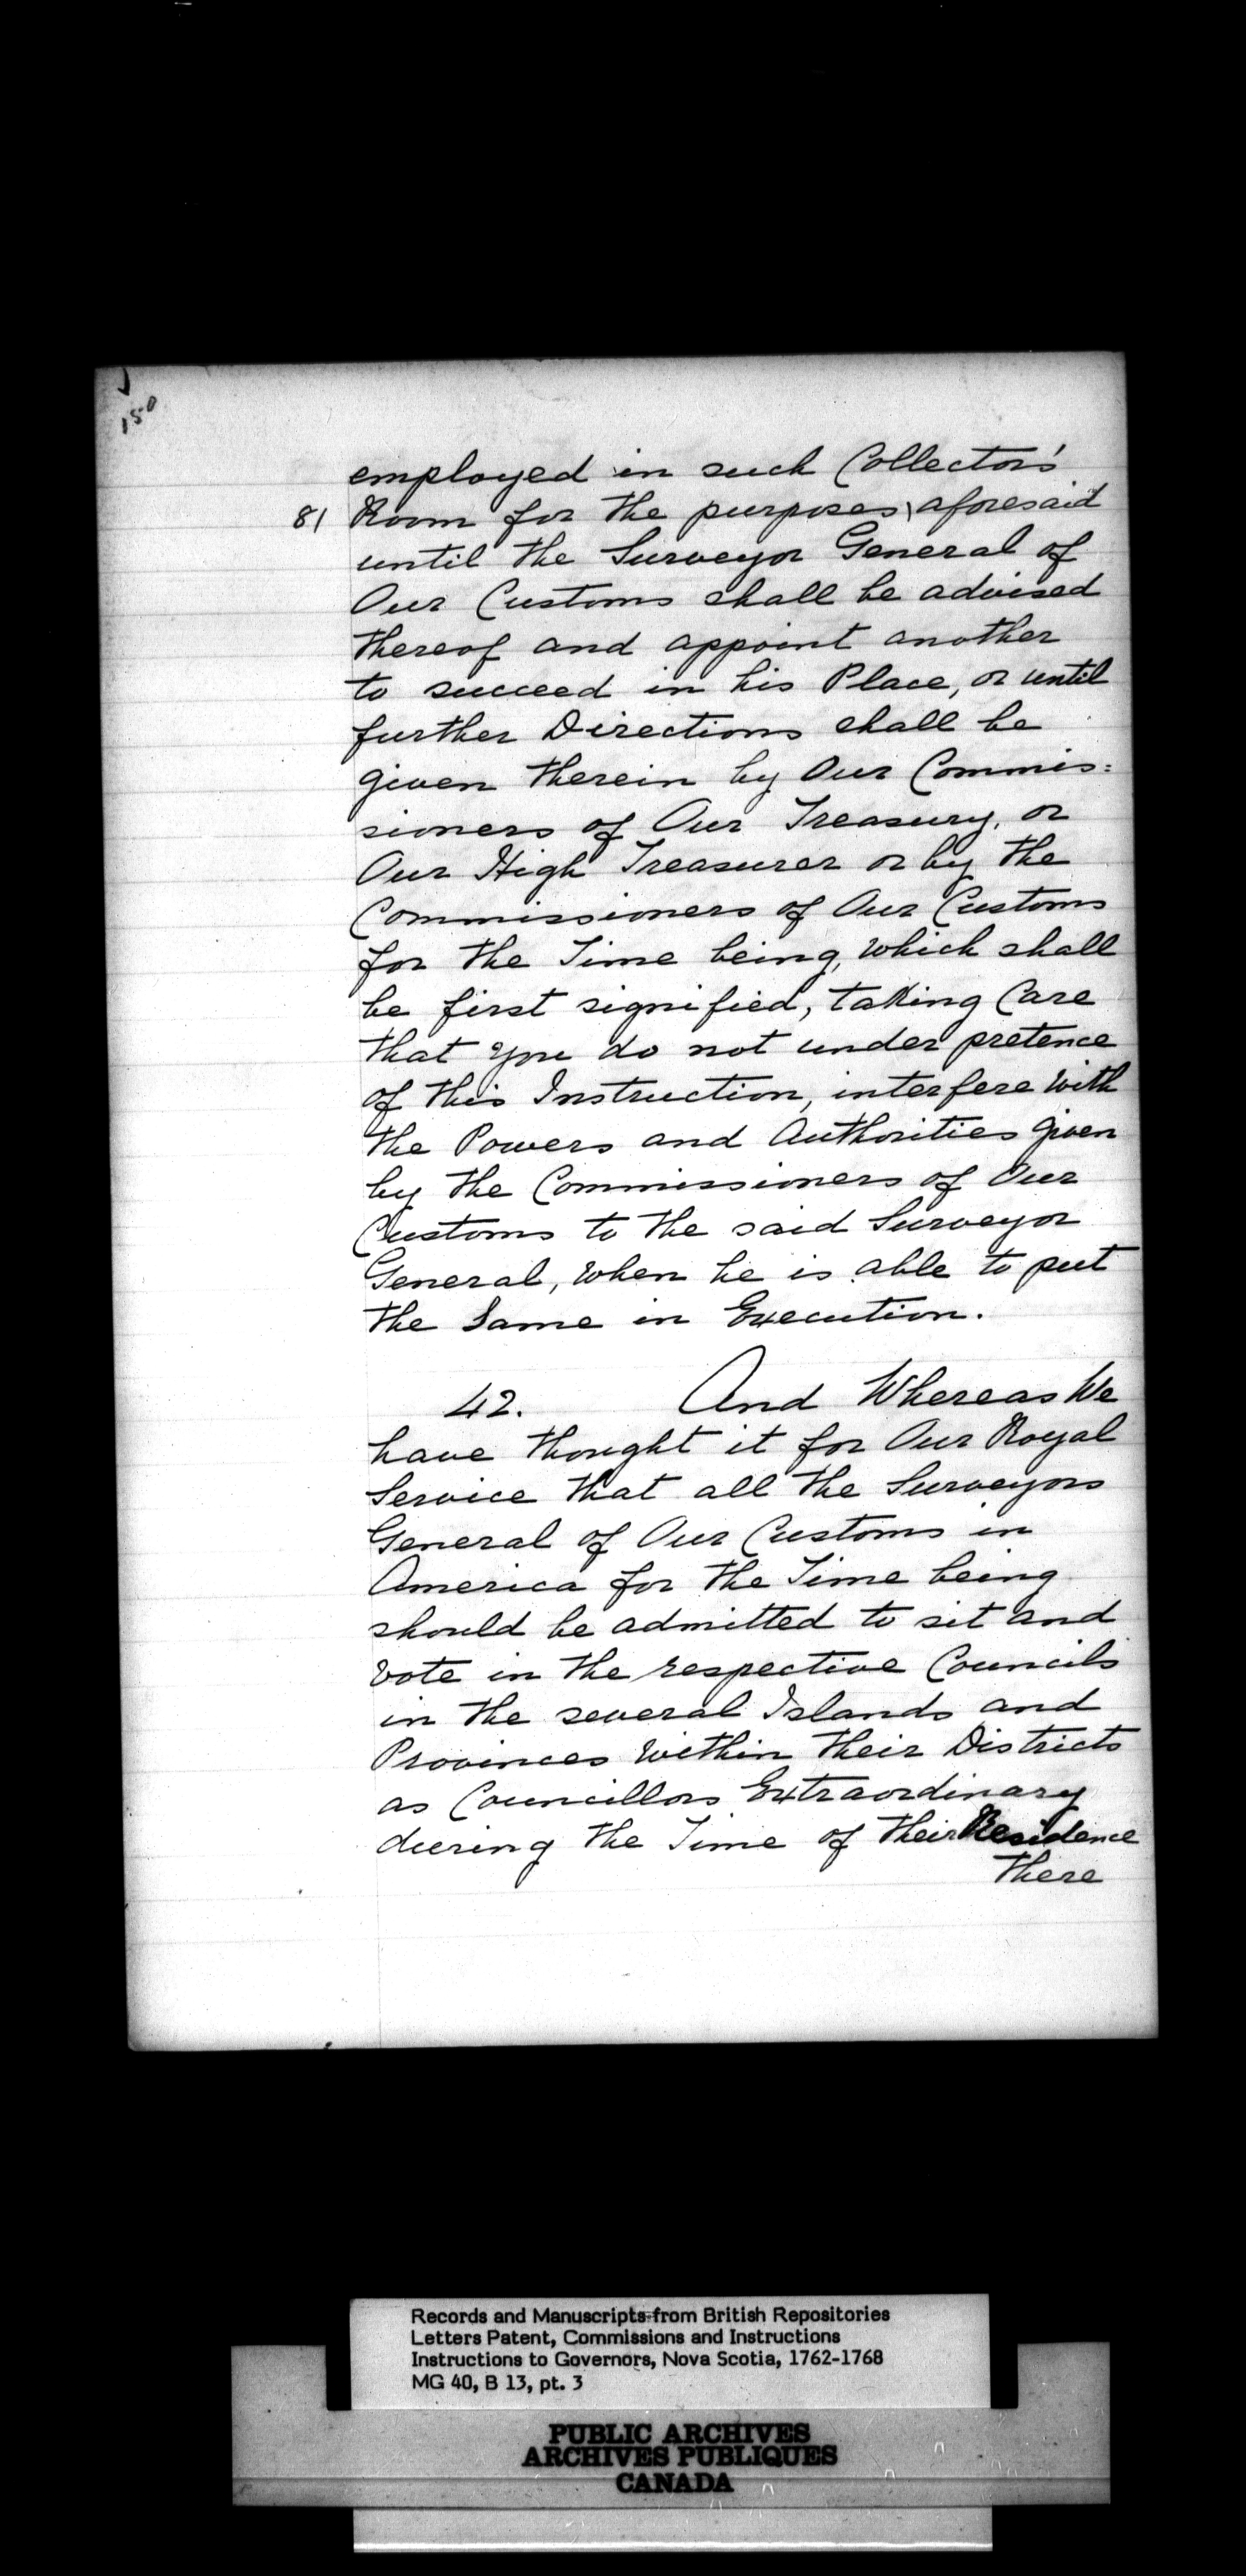 150
employed in such Collector's
81 Room for the purposes \ aforesaid
until the Surveyor General of
Our Customs shall be advised
thereof and appoint another
to succeed in his Place, or until
further Directions shall be
given therein by Our Commis:
sioners of Our Treasury, or
Our High Treasurer or by the
Commissioners of Our Customs
for the Time being, which shall
be first signified, taking Care
that you do not under pretence
of this Instruction, interfere with
the Powers and Authorities given
by the Commissioners of Our
Customs to the said Surveyor
General, when he is able to put
the Same in Execution.
42. And Whereas We
have thought it for Our Royal
Service that all the Surveyors
General of Our Customs in
America for the Time being
should be admitted to sit and
vote in the respective Councils
in the several Islands and
Provinces within their Districts
as Councillors Extraordinary
during the Time of their Residence
there
Records and Manuscripts from British Repositories
Letters Patent, Commissions and Instructions
Instructions to Governors, Nova Scotia, 1762-1768
MG 40, B 13, pt. 3
PUBLIC ARCHIVES
ARCHIVES PUBLIQUES
CANADA